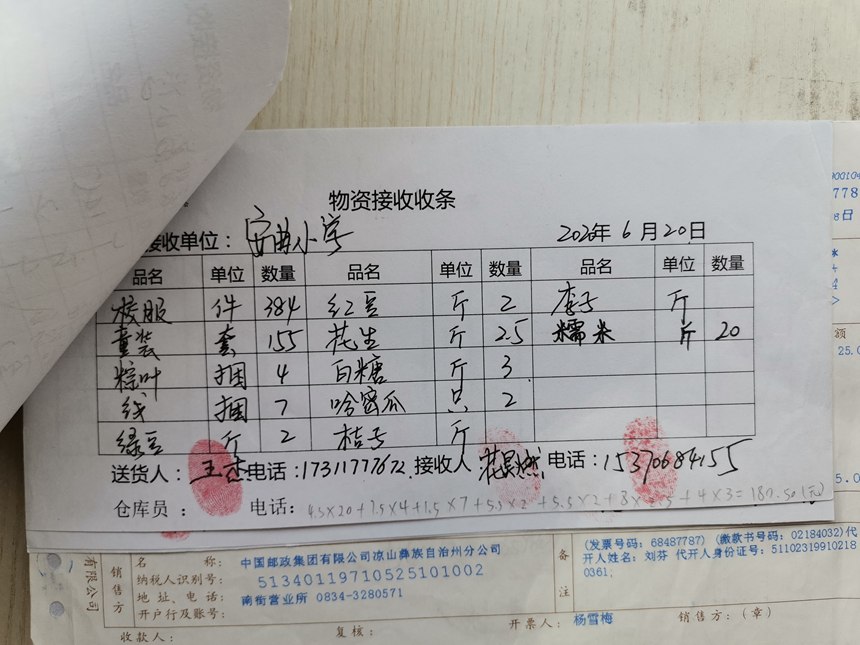 物资接收收条
接收单位：安曲小学 2020年 6 月 20 日
品名 单位 数量 品名 单位 数量 品名 单位 数量
校服 件 384 红豆 斤 2 李子 斤
童装 套 155 花生 斤 2.5 糯米 斤 20
粽叶 捆 4 白糖 斤 3
线 捆 7 哈密瓜 只 2
绿豆 斤 2 桔子 斤
送货人：王杰 电话：17311777672 接收人 电话：15370684155
仓库员： 电话：4.5×20+7.5×4+1.5×7+5.5×2+5.5×2+8×2.5+4×3=180.50(元)
00104
778
8日
额
25.0
5.0
有限公司
销售方
名 称： 中国邮政集团有限公司凉山彝族自治州分公司
纳税人识别号： 51340119710525101002
地 址、电 话： 南街营业所 0834-3280571
开户行及账号：
备注
(发票号码：68487787) (缴款书号码：02184032)代
开人姓名：刘芬 代开人身份证号：51102319910218
0361;
收款人： 复核： 开票人： 杨雪梅 销售方：（章）